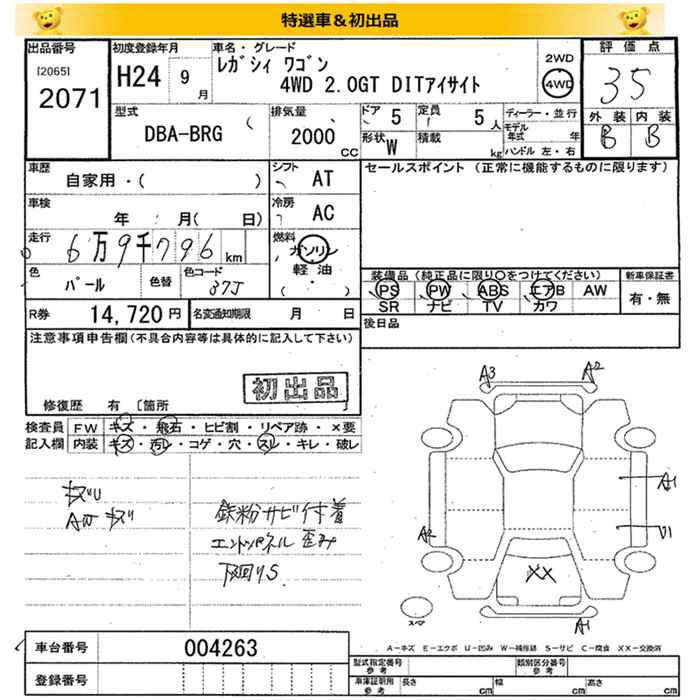 特選車&初出品
出品番号
[2065]
2071
初度登録年月
H24 9月
車名・グレード
レガシィ ワゴン
4WD 2.0GT DITアイサイト
2WD
4WD
評価点
35
外装 内装
B B
型式
DBA-BRG
排気量
2000 CC
ドア 5
定員 5人
形状 W
積載 kg
ディーラー・並行
モデル年式 年
ハンドル 左・右
車歴
自家用・( )
シフト AT
車検
年 月( 日)
冷房 AC
走行
6万9千796 km
燃料
ガソリン
軽油
( ・ )
色 パール
色替
色コード 37J
セールスポイント(正常に機能するものに限ります)
装備品(純正品に限り○をつけてください)
PS PW ABS エアB AW
SR ナビ TV カワ
新車保証書
有・無
R券 14,720円
名変通知期限 月 日
後日品
注意事項申告欄(不具合内容等は具体的に記入して下さい)
初出品
修復歴 有〔箇所
検査員記入欄
FW キズ・飛石・ヒビ割・リペア跡・×要
内装 キズ・汚レ・コゲ・穴・スレ・キレ・破レ
キズU
AW キズ
鉄粉サビ付着
エンドパネル歪み
下回りS
A3 A2
A1
A2 U1
XX
スペア
A1
A-キズ E-エクボ U-凹み W-補修跡 S-サビ C-腐食 XX-交換済
車台番号 004263
登録番号
型式指定番号 参考
類別区分番号 参考
車庫証明用 参考
長さ cm 幅 cm 高さ cm